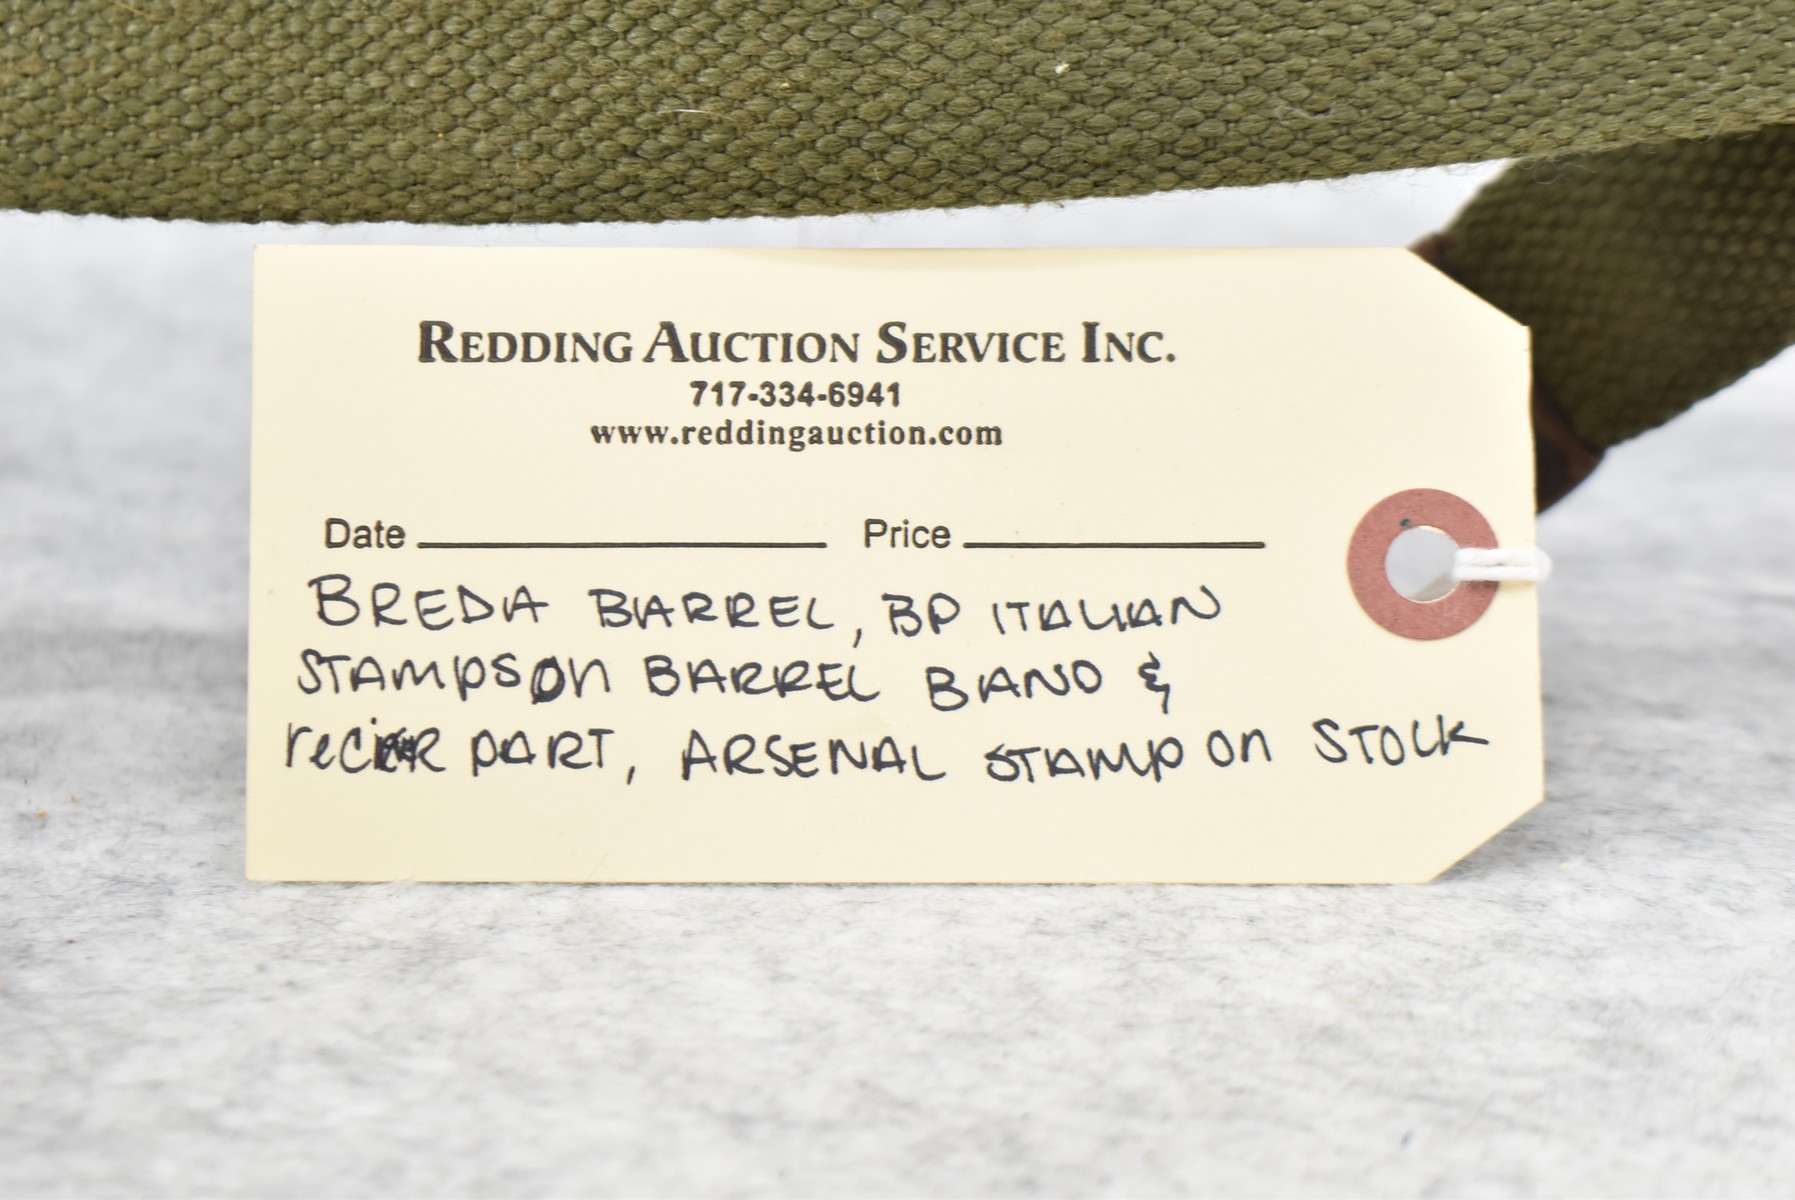 REDDING AUCTION SERVICE INC.
717-334-6941
www.reddingauction.com
Date Price
BREDA BARREL, BP ITALIAN
STAMPS ON BARREL BAND &
PART, ARSENAL STAMP ON STOCK